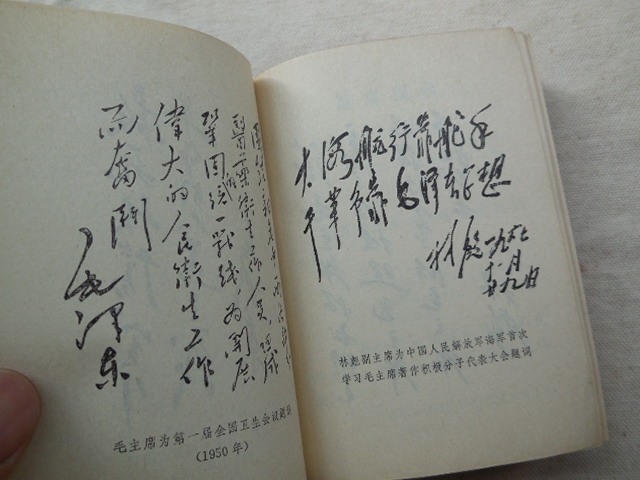 團結新老中西各部分
醫藥衛生工作人員,組成
鞏固统一戰线,为開展
偉大的人民衛生工作
而奮鬥
毛泽东
毛主席为第一届全国卫生会议题词
(1950年)
大海航行靠舵手
干革命靠毛泽东思想
林彪 一九六七
十一月廿九日
林彪副主席为中国人民解放军海军首次
学习毛主席著作积极分子代表大会题词